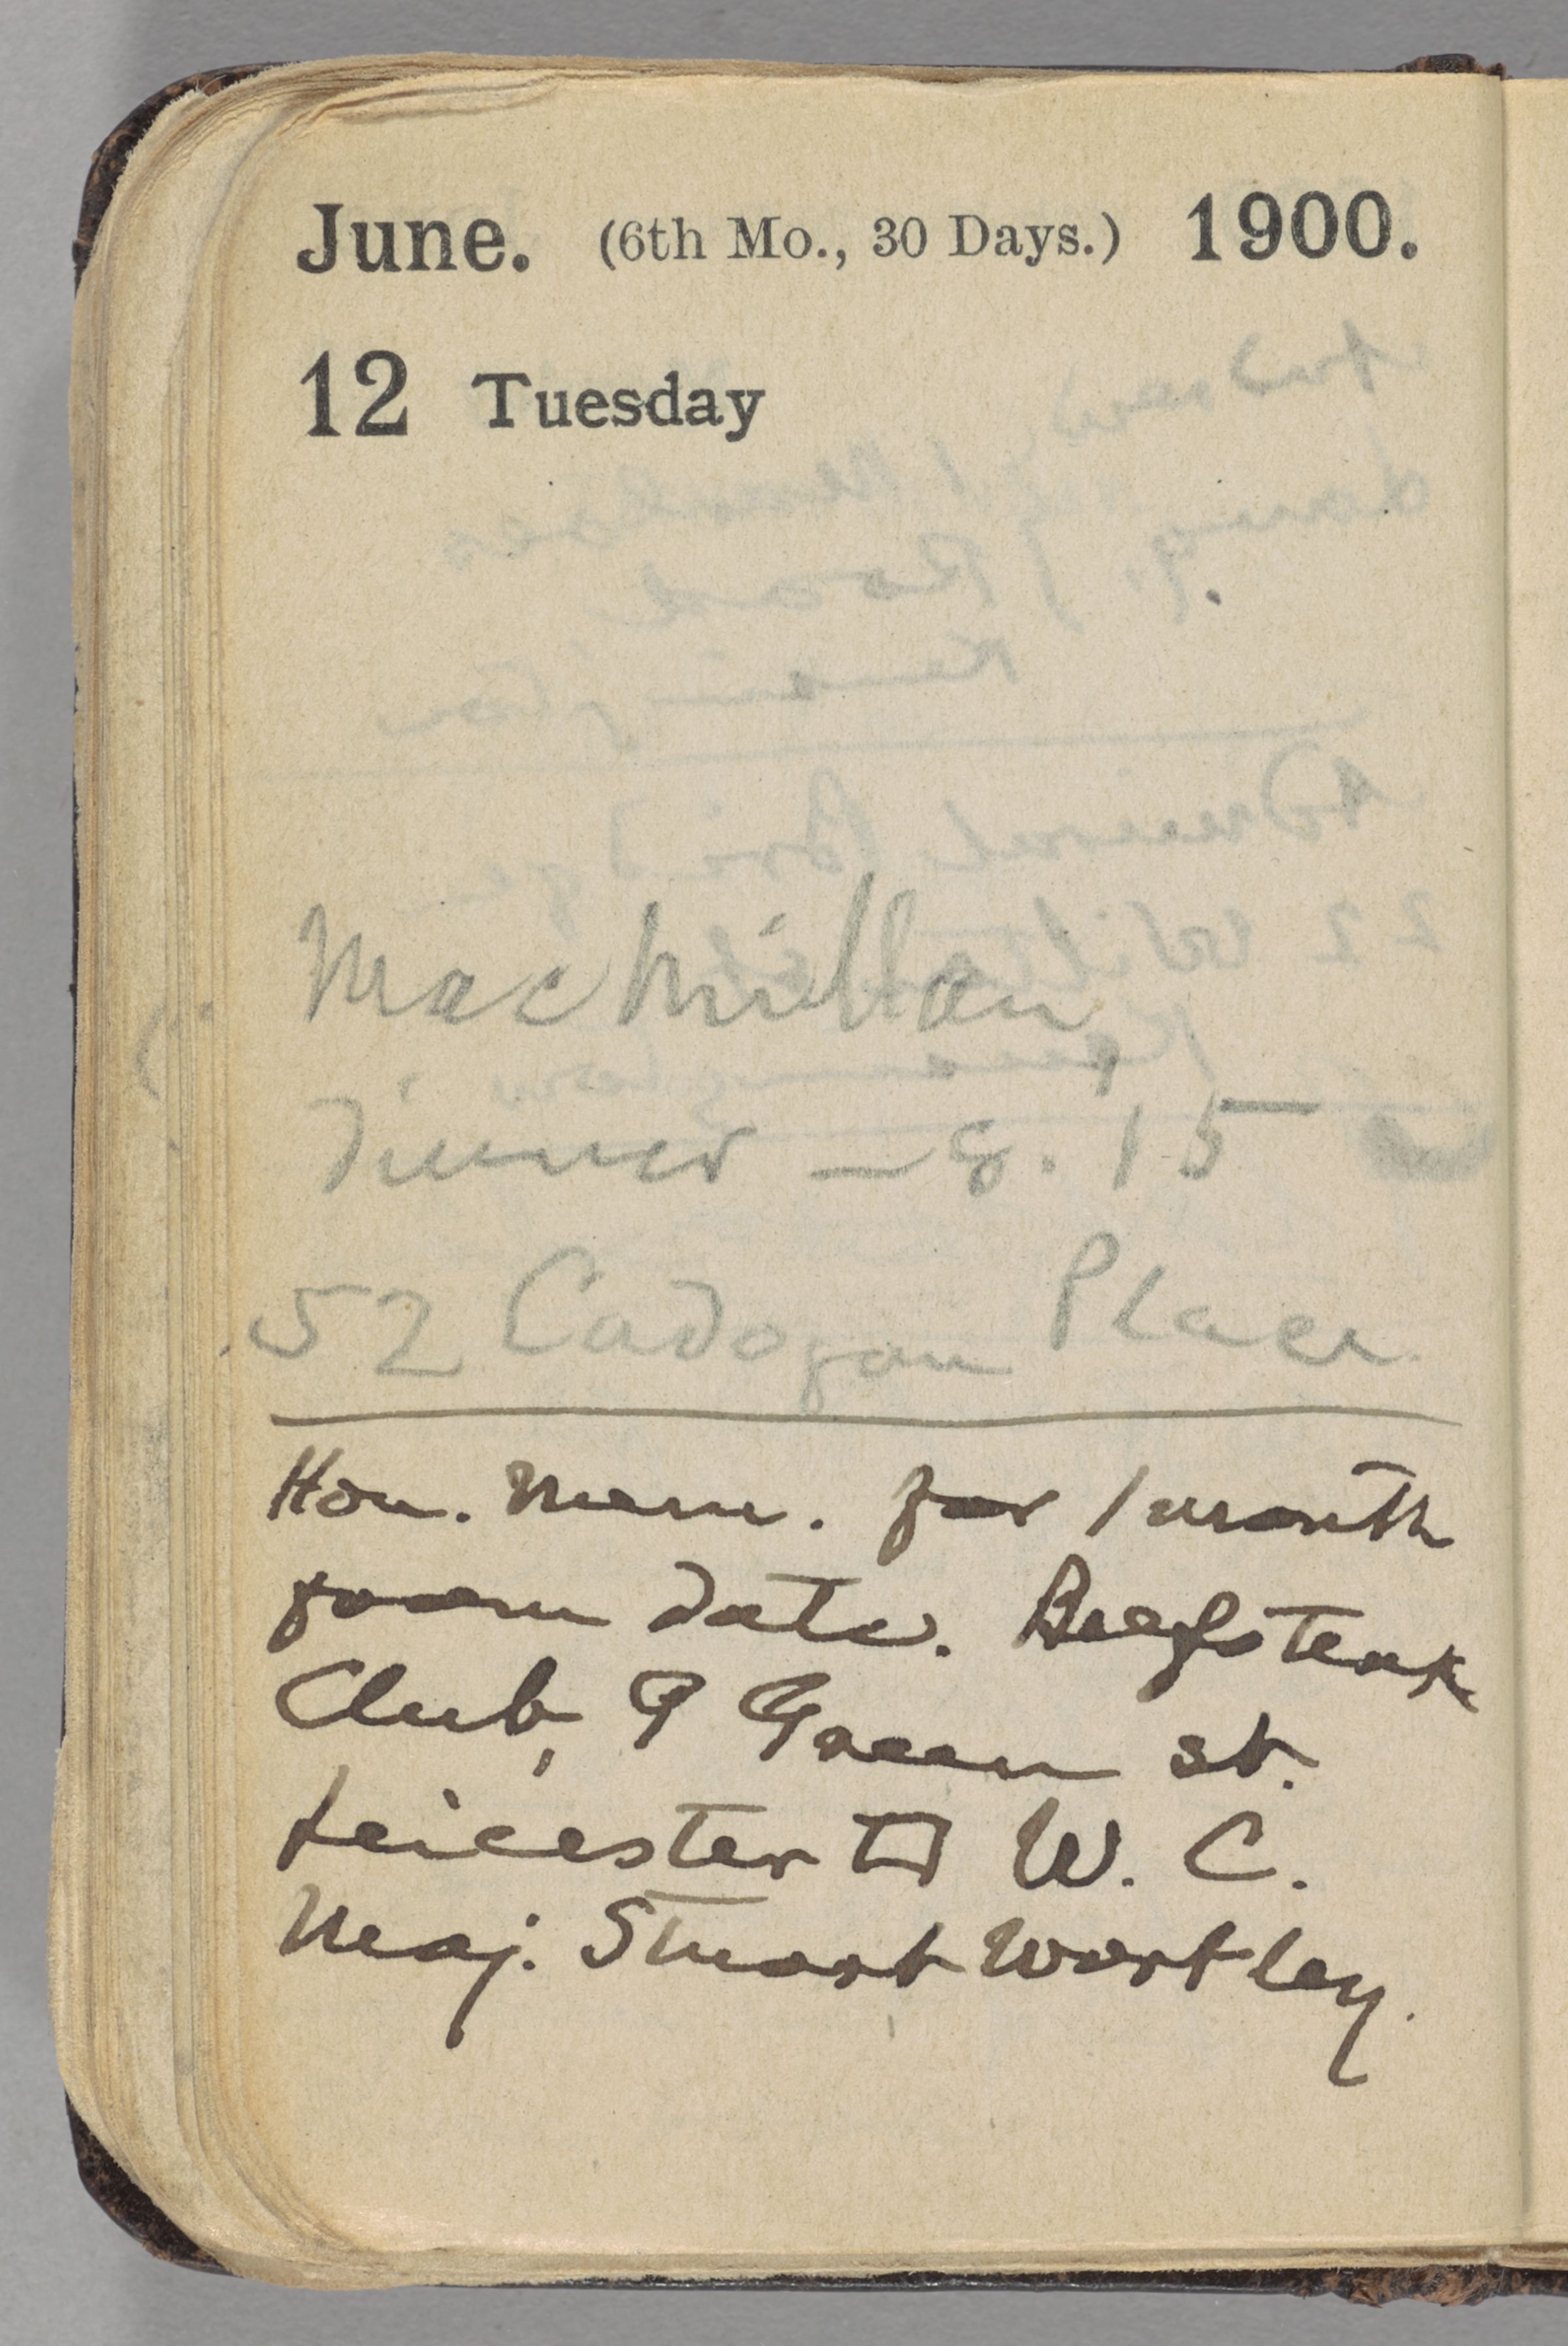 June. (6th Mo., 30 Days.) 1900.
12 Tuesday
MacMillan
Dinner — 8.15
52 Cadogan Place.
Hon. Mem. for 1 month
from date. Beefsteak
Club, 9 Green st.
Leicester W. C.
Maj. Stuart Wortley.